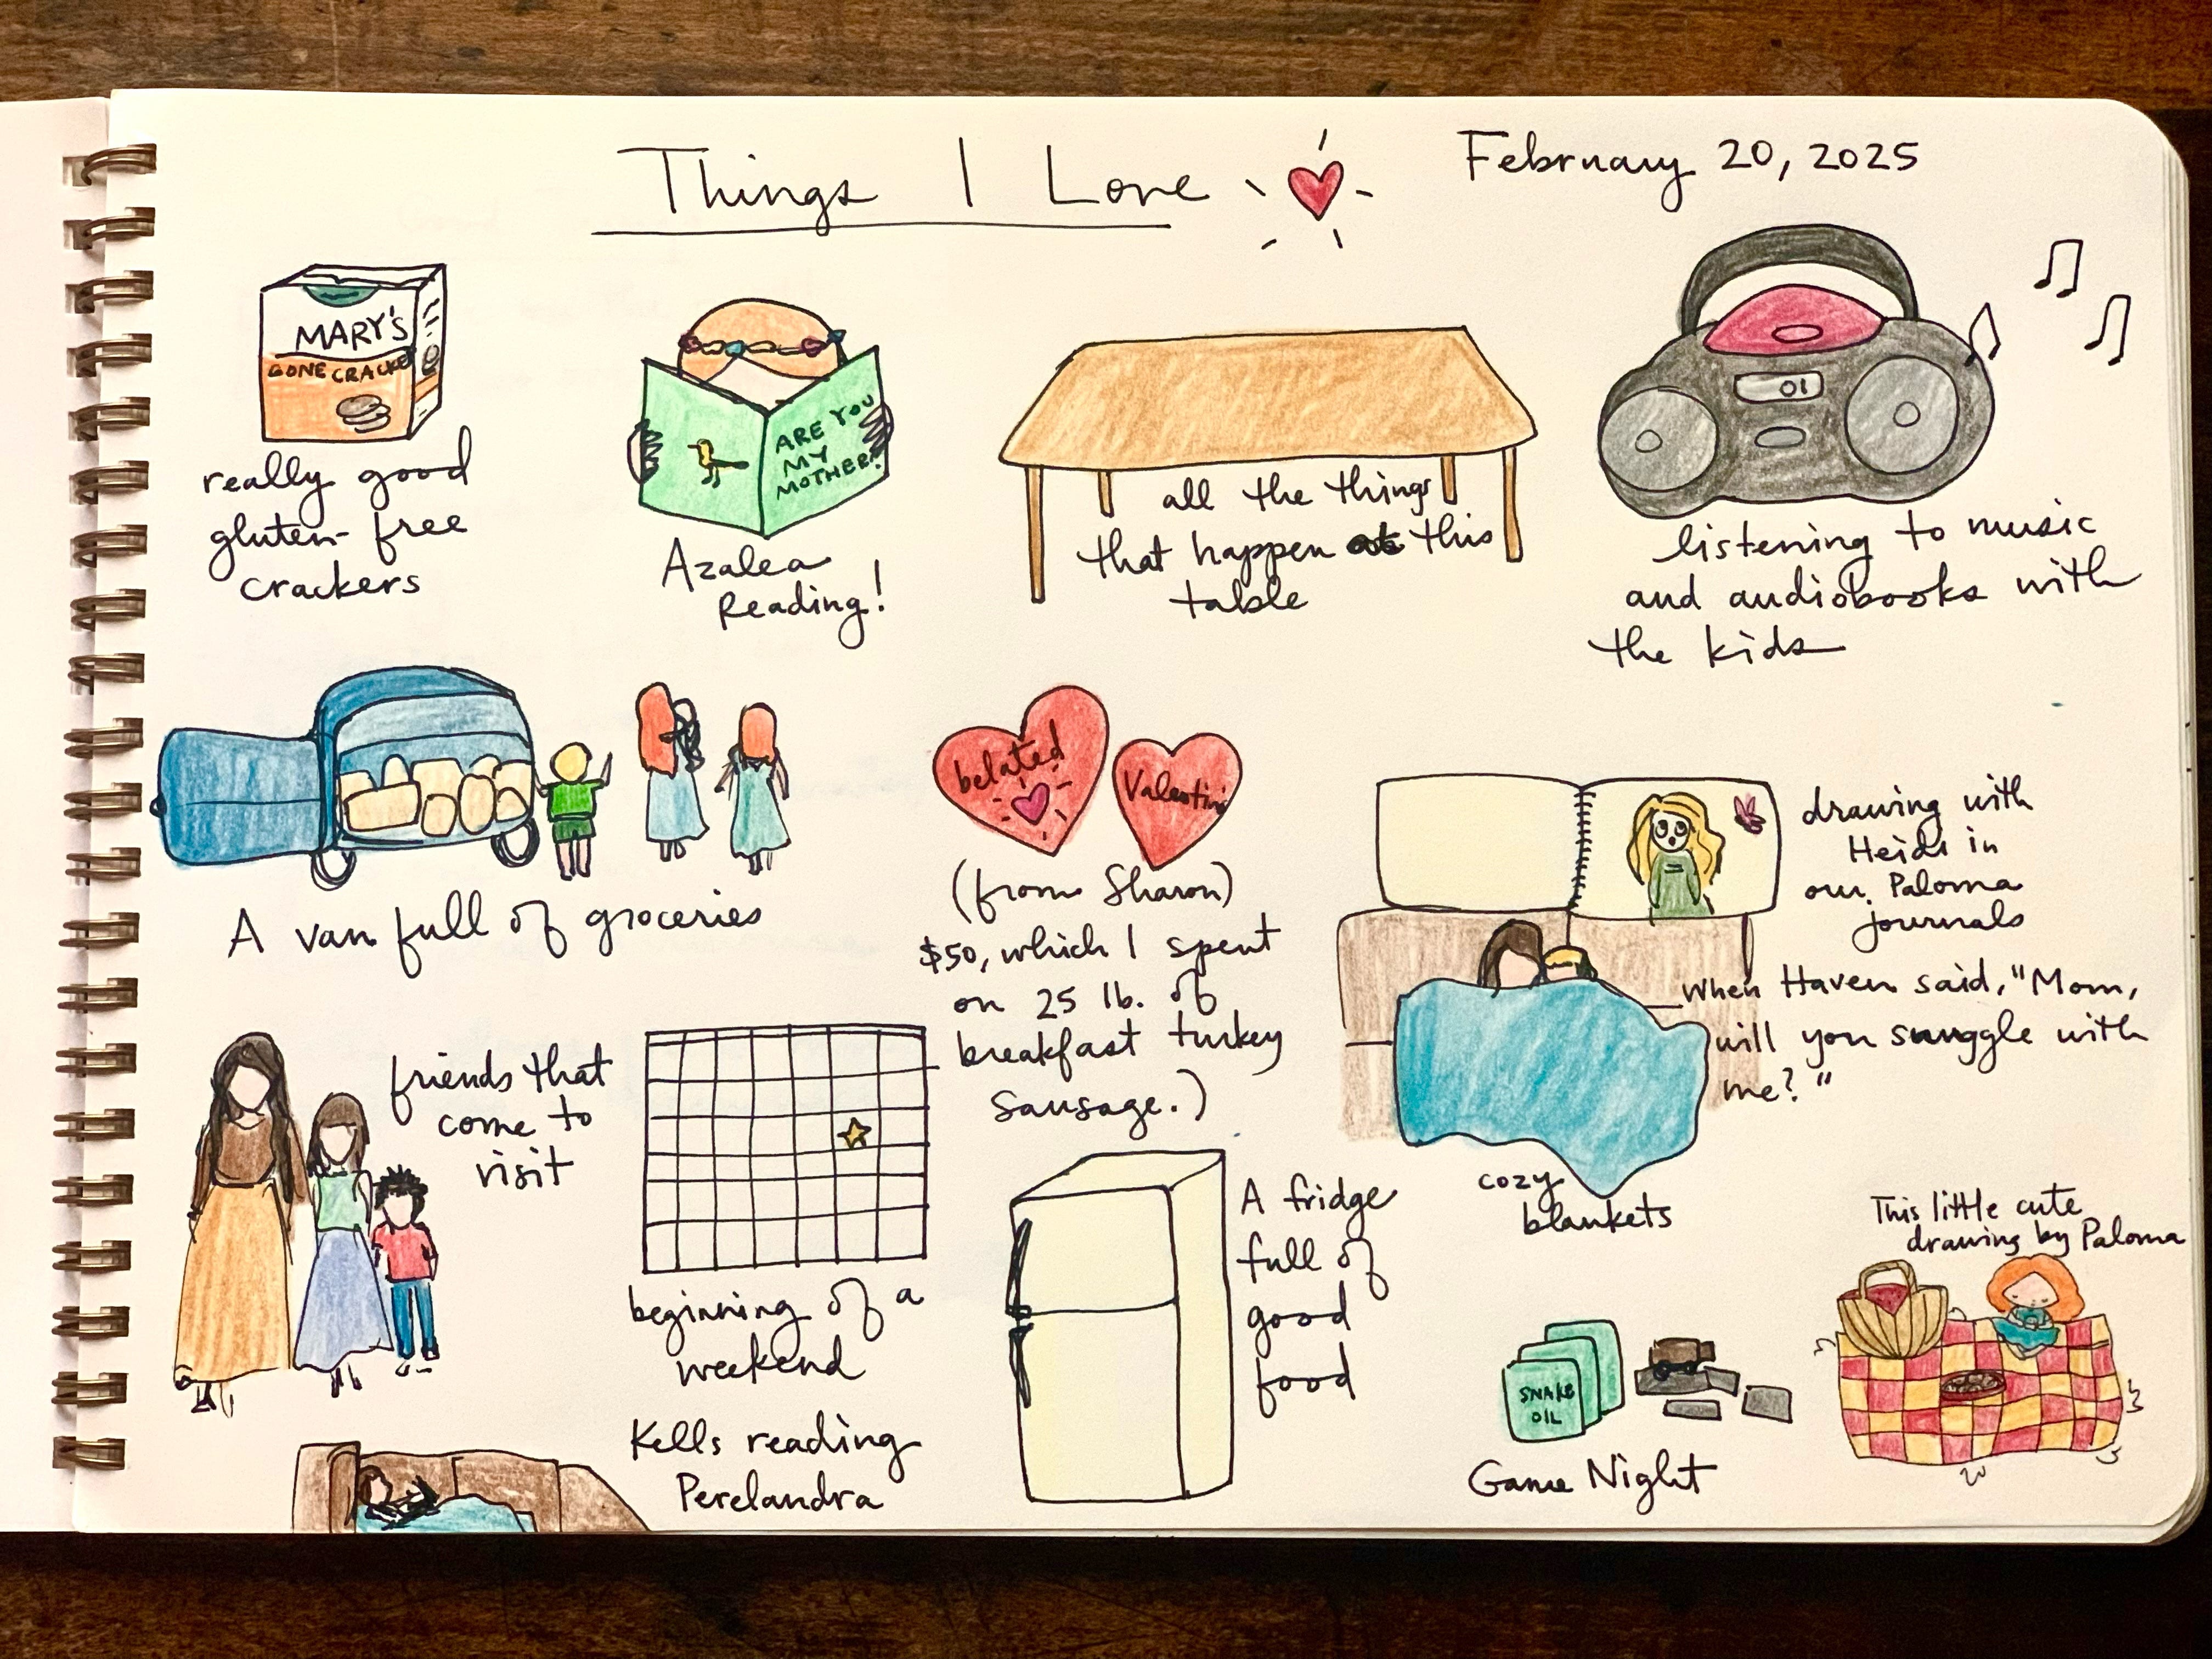 Things I Love
February 20, 2025
MARY'S
GONE CRACKE
really good
gluten-free
crackers
ARE YOU
MY
MOTHER?
Azalea
Reading!
all the things
that happen at this
table
01
listening to music
and audiobooks with
the kids
A van full of groceries
belated
Valentine
(from Sharon)
$50, which I spent
on 25 lb. of
breakfast turkey
sausage.)
drawing with
Heidi in
our Paloma
journals
When Haven said, "Mom,
will you snuggle with
me?"
cozy
blankets
friends that
come to
visit
beginning of a
weekend
A fridge
full of
good
food
Kells reading
Perelandra
SNAKE
OIL
Game Night
This little cute
drawing by Paloma